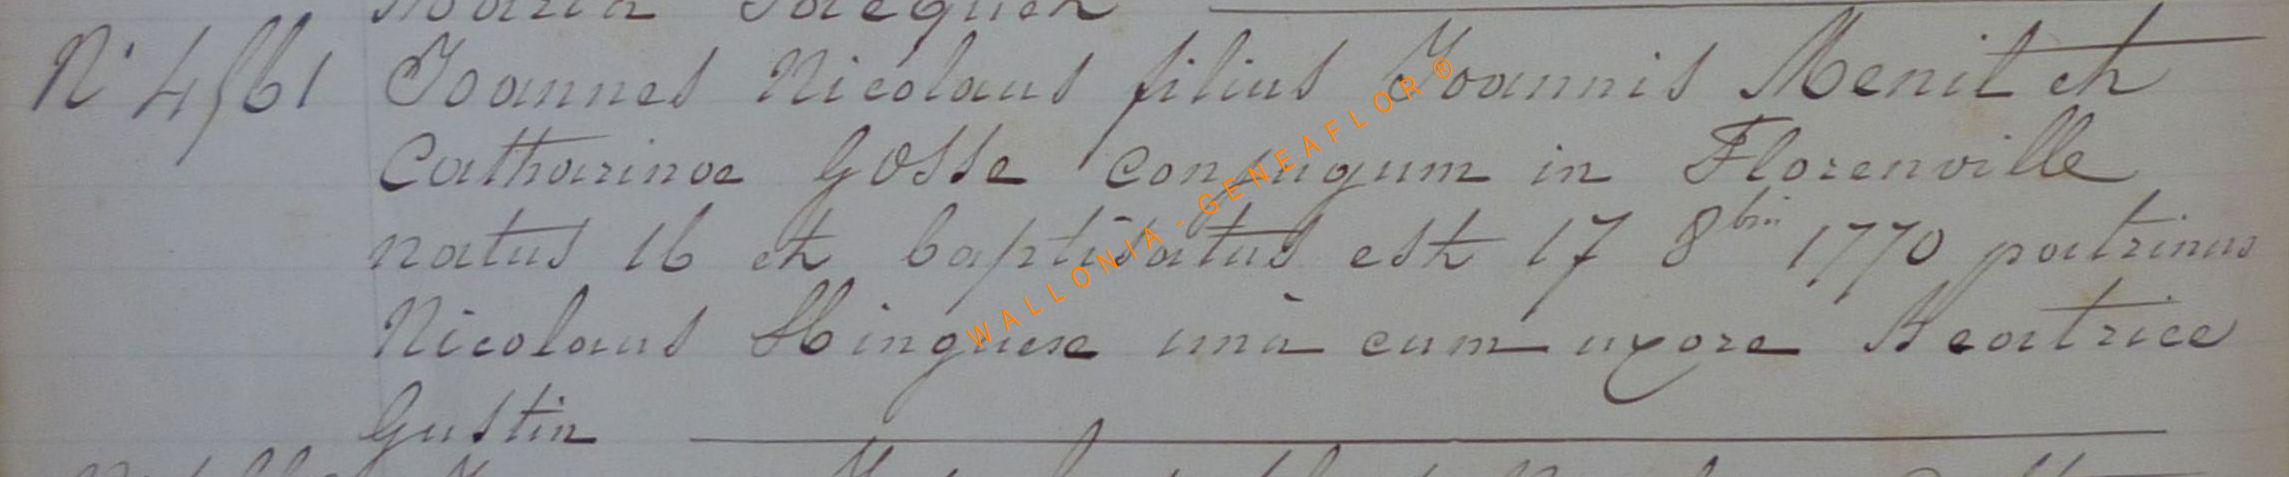 Maria Jacquet
N° 4561 Joannes Nicolaus filius Joannis Menil et
Catharinae Gosse conjugum in Florenville
natus 16 et baptisatus est 17 8bris 1770 patrinus
Nicolaus Hinguese unà cum uxore Beatrice
Gustin
WALLONIA.GENEAFLOR®